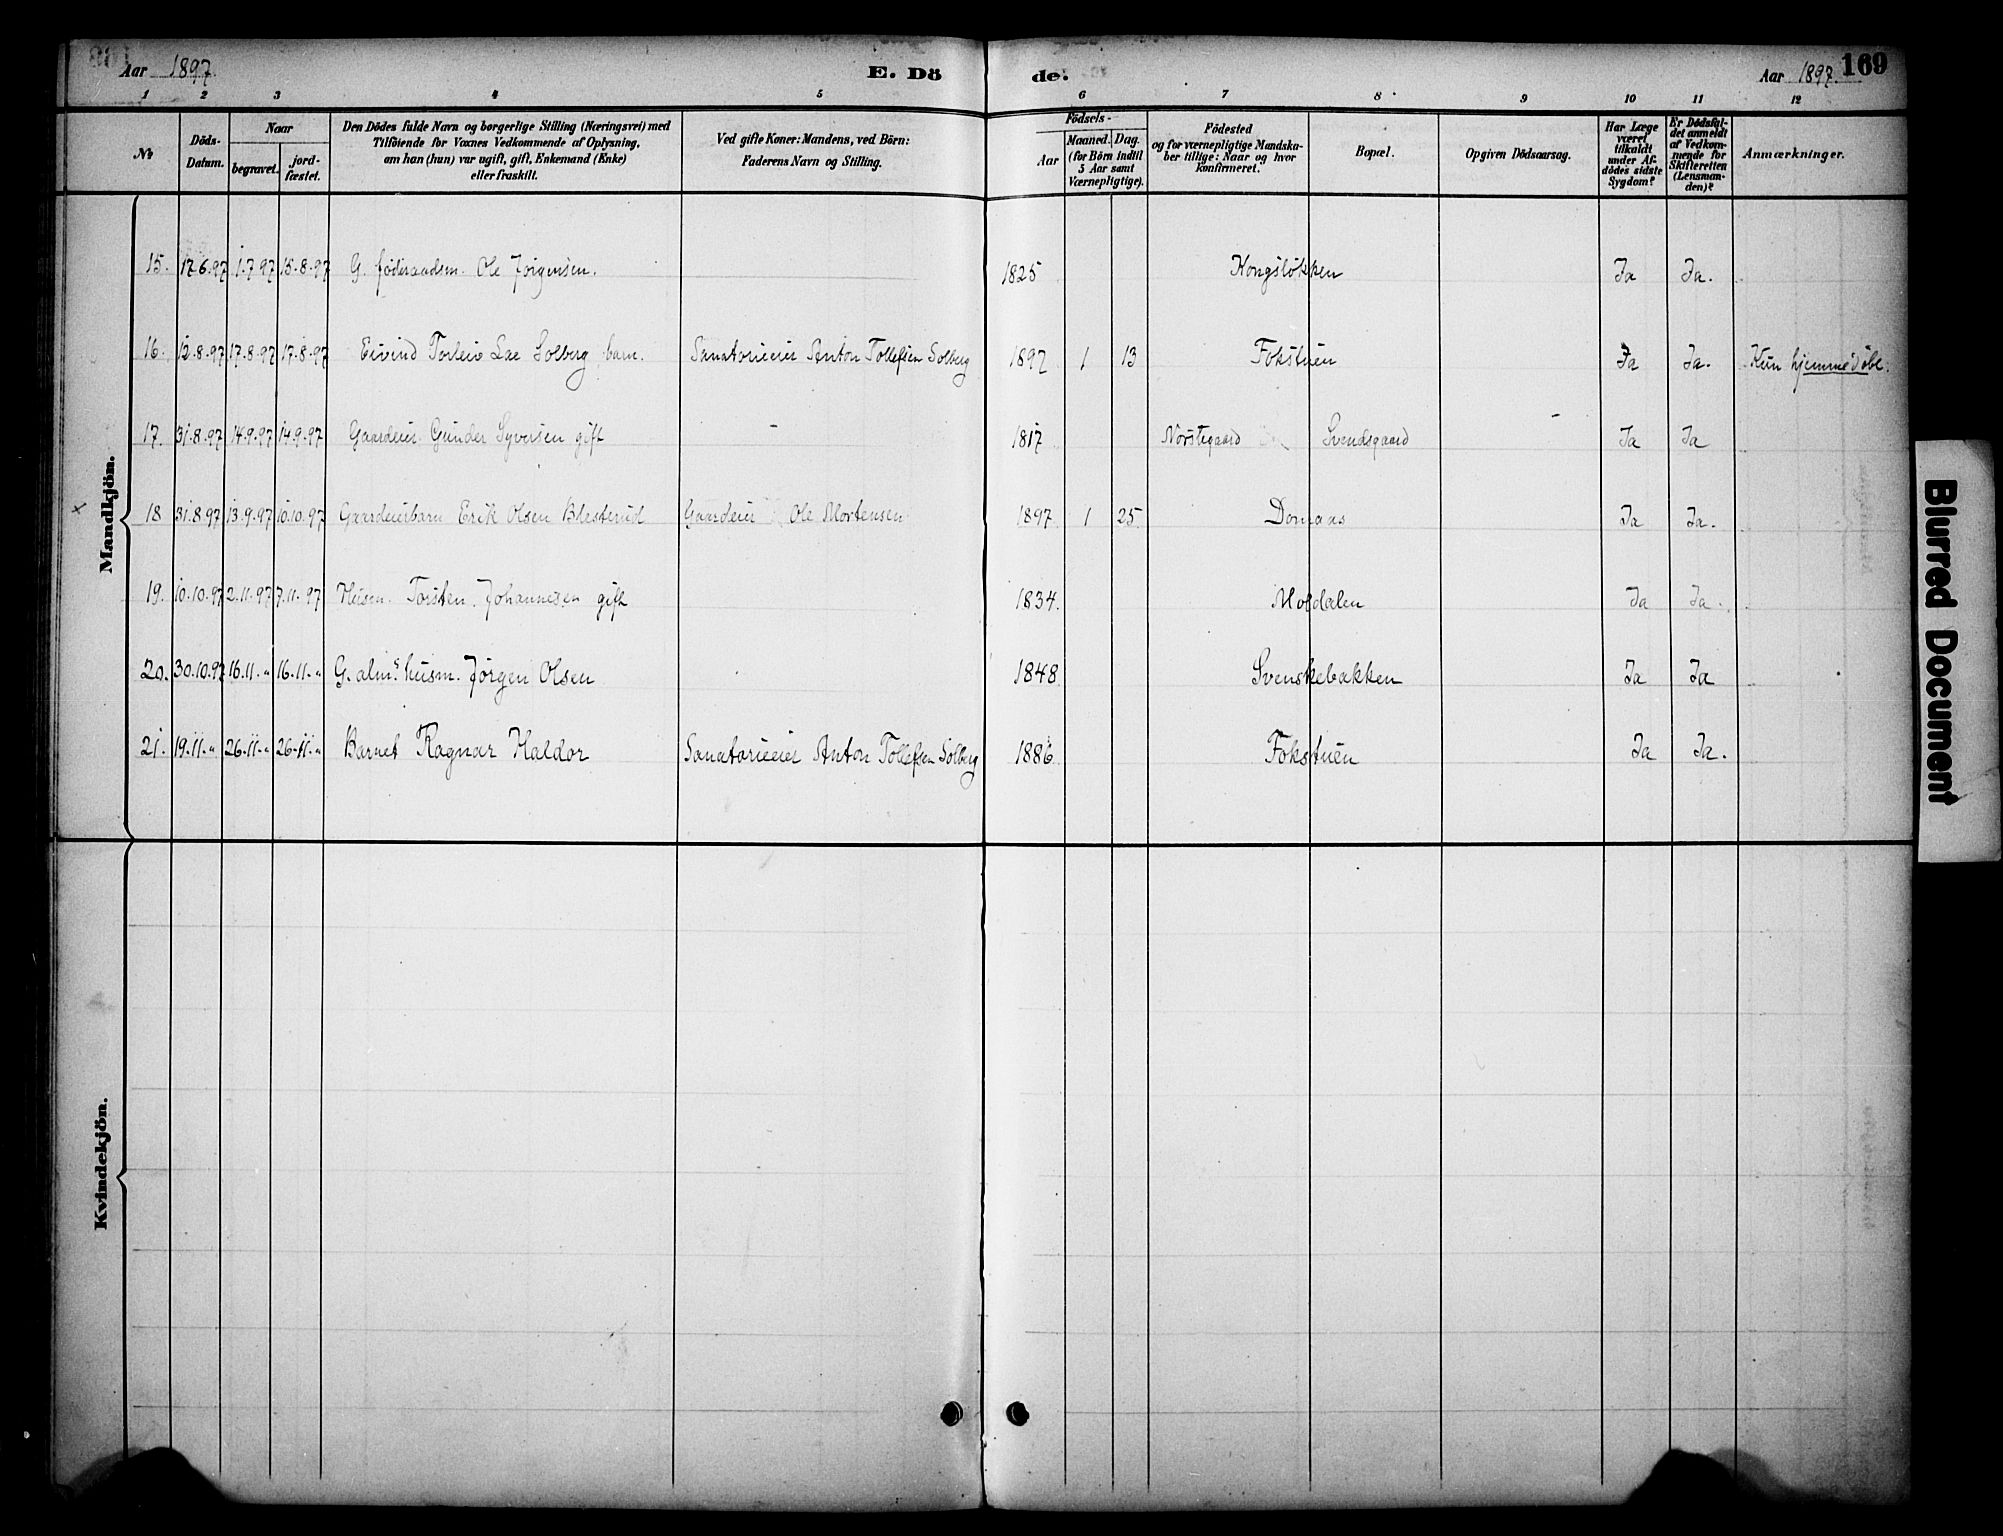 Aar 1897. E. Dö de. Aar 1897. 169
1 2 3 4 5 6 7 8 9 10 11 12
No
Döds-Datum.
Naar
begravet.
jord-fæstet.
Den Dödes fulde Navn og borgerlige Stilling (Næringsvei) med
Tilföiende for Voxnes Vedkommende af Oplysning,
om han (hun) var ugift, gift, Enkemand (Enke)
eller fraskilt.
Ved gifte Koner: Mandens, ved Börn:
Faderens Navn og Stilling.
Födsels-
Aar
Maaned. Dag.
(for Börn indtil
5 Aar samt
Værnepligtige).
Födested
og for værnepligtige Mandska-
ber tillige: Naar og hvor
konfirmeret.
Bopæl.
Opgiven Dödsaarsag.
Har Læge
været
tilkaldt
under Af-
dödes sidste
Sygdom?
Er Dödsfal-
det anmeldt
af Vedkom-
mende for
Skifteretten
(Lensman-
den)?
Anmærkninger.
Mandkjön.
15. 17.6.97 1.7.97 15.8.97 G. föderaadsm. Ole Jörgensen. 1825 Kongsløkken Ja Ja.
16. 12.8.97 17.8.97 17.8.97 Eivind Torleiv Solberg barn. Sanatorieeier Anton Tollefsen Solberg 1897 1 13 Fokstuen Ja Ja. Kun hjemmedøbt.
17. 31.8.97 14.9.97 14.9.97 Gaardeier Gunder Syversen gift - 1817 Norstegaard Svendsgaard - Ja Ja
x 18 31.8.97 13.9.97 10.10.97 Gaardeierbarn Erik Olsen Blesterud Gaardeier Ole Mortensen 1897 1 25 Domaas Ja Ja.
19. 10.10.97 2.11.97 7.11.97 Husm. Torsten Johannesen gift 1834. Ja Ja.
20. 30.10.97 16.11.„ 16.11.„ G. alms. husm. Jörgen Olsen 1848 Svenskebakken Ja Ja
21. 19.11.„ 26.11.„ 26.11.„ Barnet Ragnar Haldor Sanatorieeier Anton Tollefsen Solberg 1886 Fokstuen Ja Ja.
Kvindekjön.
Blurred Document